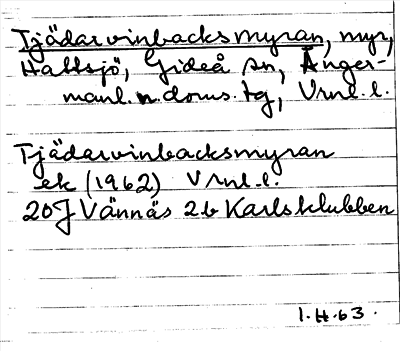 Tjädarvinbacksmyran, myr,
Hattsjö, Gideå sn, Ånger-
manl. n. doms. tg, Vrnl. l.
Tjädarvinbacksmyran
ek (1962) Vrnl. l.
20J Vännäs 2b Karlsklubben
1.H.63.